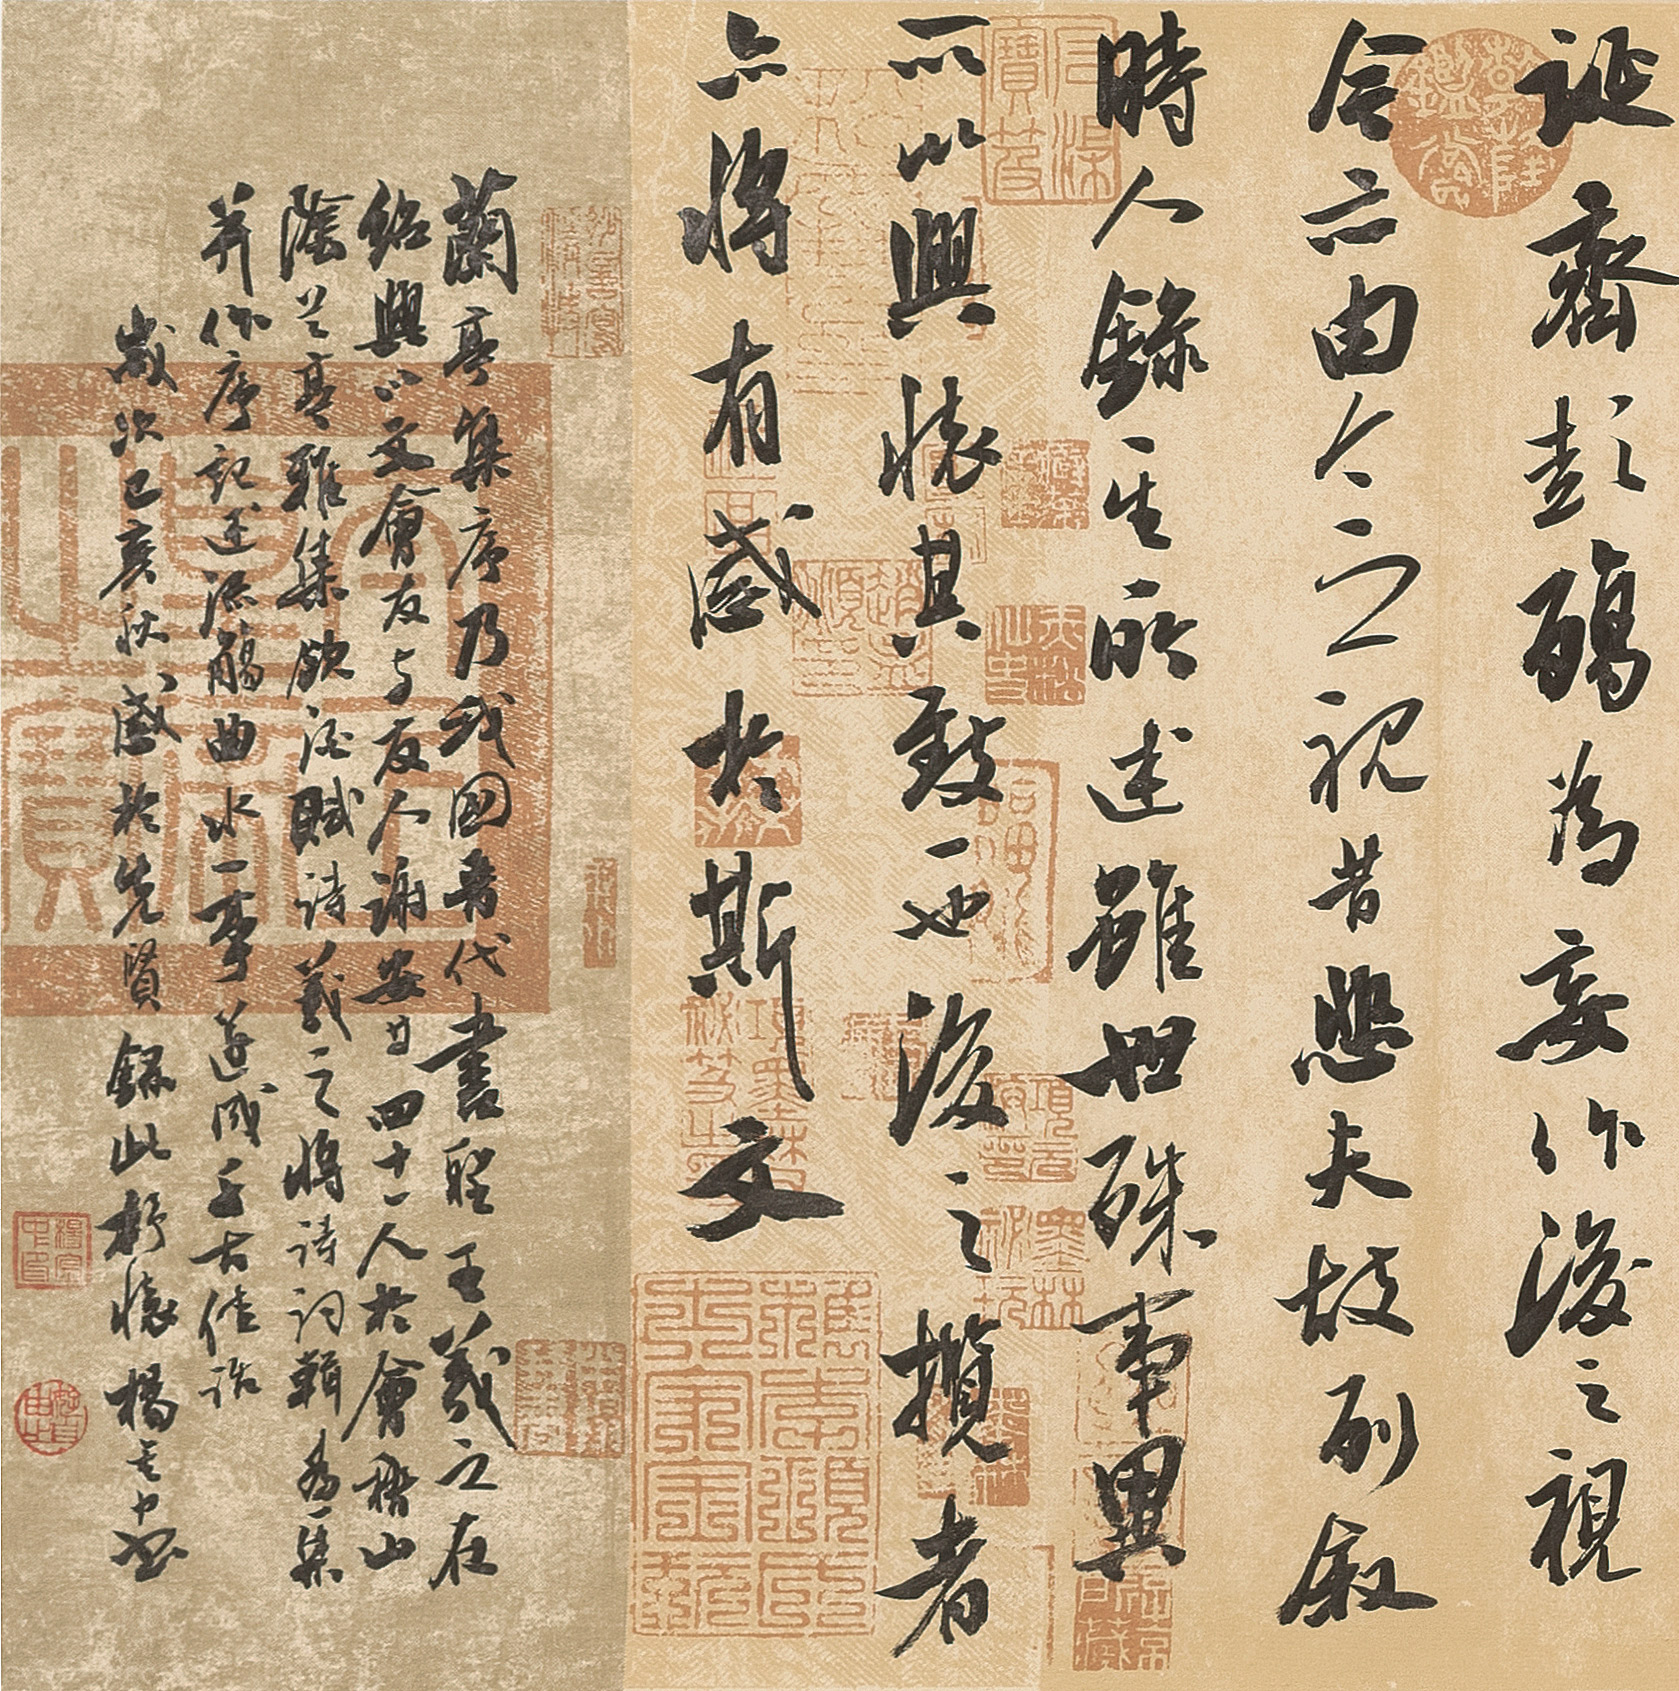 誕齊彭殤為妄作後之視
今亦由今之視昔悲夫故列叙
時人録其所述雖世殊事異
所以興懷其致一也後之攬者
亦將有感於斯文
蘭亭集序乃我國晋代書聖王羲之在
紹興以文會友与友人謝安等四十一人於會稽山
陰蘭亭雅集飲酒賦诗羲之将诗词輯為一集
并作序記述流觴曲水一事遂成千古佳话
歲次己亥秋感於先賢録此抒懷楊中書